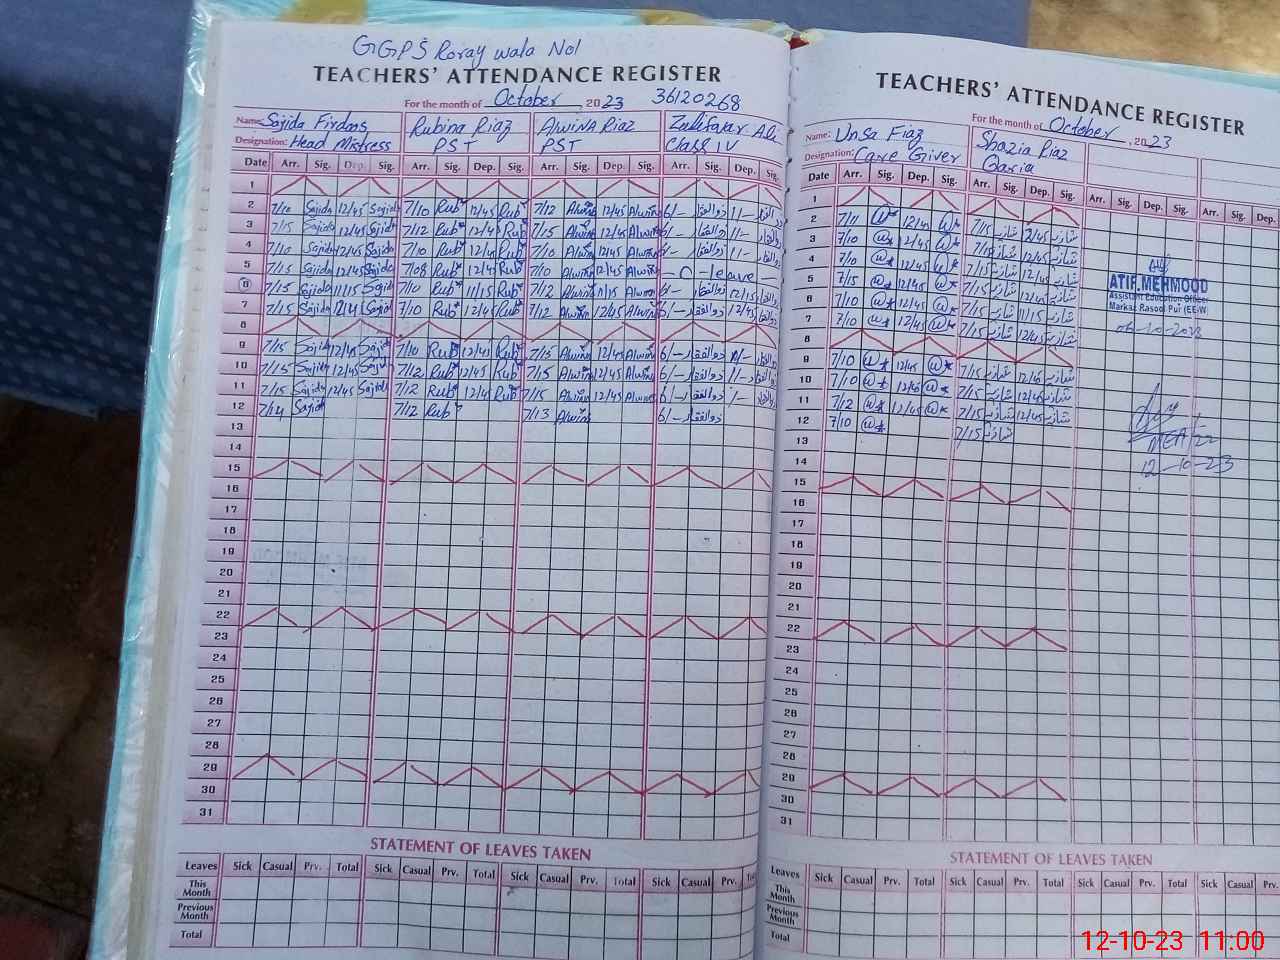 GGPS Roray wala No1
TEACHERS' ATTENDANCE REGISTER
For the month of October, 2023 36120268
Name: Sajida Firdous Rubina Riaz Alwina Riaz Zulifaqar Ali
Designation: Head Mistress PST PST Class IV
Date Arr. Sig. Dep. Sig. Arr. Sig. Dep. Sig. Arr. Sig. Dep. Sig. Arr. Sig. Dep. Sig.
1
2 7/10 Sajida 12/45 Sajida 7/10 Rub 12/45 Rub 7/12 Alwina 12/45 Alwina 6/- ذوالفقار 11/-
3 7/15 Sajida 12/45 Sajida 7/12 Rub 12/45 Rub 7/15 Alwina 12/45 Alwina 6/- ذوالفقار 11/-
4 7/10 Sajida 12/45 Sajida 7/10 Rub 12/45 Rub 7/10 Alwina 12/45 Alwina 6/- ذوالفقار 11/-
5 7/15 Sajida 12/45 Sajida 7/08 Rub 12/45 Rub 7/10 Alwina 12/45 Alwina leave
6 7/15 Sajida 11/15 Sajida 7/10 Rub 11/15 Rub 7/12 Alwina 11/15 Alwina 6/- ذوالفقار 12/15
7 7/15 Sajida Sajida 7/10 Rub 12/45 Rub 7/12 Alwina 12/45 Alwina 6/- ذوالفقار 12/45
8
9 7/15 Sajida 12/45 Sajida 7/10 Rub 12/45 Rub 7/15 Alwina 12/45 Alwina 6/- ذوالفقار
10 7/15 Sajida 12/45 Sajida 7/12 Rub 12/45 Rub 7/15 Alwina 12/45 Alwina 6/- ذوالفقار 11/-
11 7/15 Sajida 12/45 Sajida 7/12 Rub 12/45 Rub 7/15 Alwina 12/45 Alwina 6/- ذوالفقار
12 7/14 Sajida 7/12 Rub 7/13 Alwina 6/- ذوالفقار
13
14
15
16
17
18
19
20
21
22
23
24
25
26
27
28
29
30
31
STATEMENT OF LEAVES TAKEN
Leaves Sick Casual Prv. Total Sick Casual Prv. Total Sick Casual Prv. Total
This Month
Previous Month
Total
TEACHERS' ATTENDANCE REGISTER
For the month of October, 2023
Name: Unsa Fiaz Shazia Riaz
Designation: Care Giver
Date Arr. Sig. Dep. Sig. Arr. Sig. Dep. Sig. Arr. Sig. Dep. Sig. Arr. Sig. Dep.
1
2 7/11 12/45 7/15 شازیہ 12/45 شازیہ
3 7/10 12/45 7/15 شازیہ 12/45 شازیہ
4 7/10 12/45 7/15 شازیہ 12/45 شازیہ
5 7/15 12/45 7/15 شازیہ 12/45 شازیہ
6 7/10 12/45 7/15 شازیہ 11/15 شازیہ
7 7/10 12/45 7/15 شازیہ 12/45 شازیہ
8
9 7/10 12/45 7/15 شازیہ 12/45 شازیہ
10 7/10 12/45 7/15 شازیہ 12/45 شازیہ
11 7/12 12/45 7/15 شازیہ 12/45 شازیہ
12 7/10 7/15 شازیہ
13
14
15
16
17
18
19
20
21
22
23
24
25
26
27
28
29
30
31
ATIF MEHMOOD
Assistant Education Officer
Markaz Rasool Pur (EE-W)
06-10-2023
MEA-22
12-10-23
STATEMENT OF LEAVES TAKEN
Leaves Sick Casual Prv. Total Sick Casual Prv. Total Sick Casual Prv. Total Sick Casual Prv.
This Month
Previous Month
Total
12-10-23 11:00